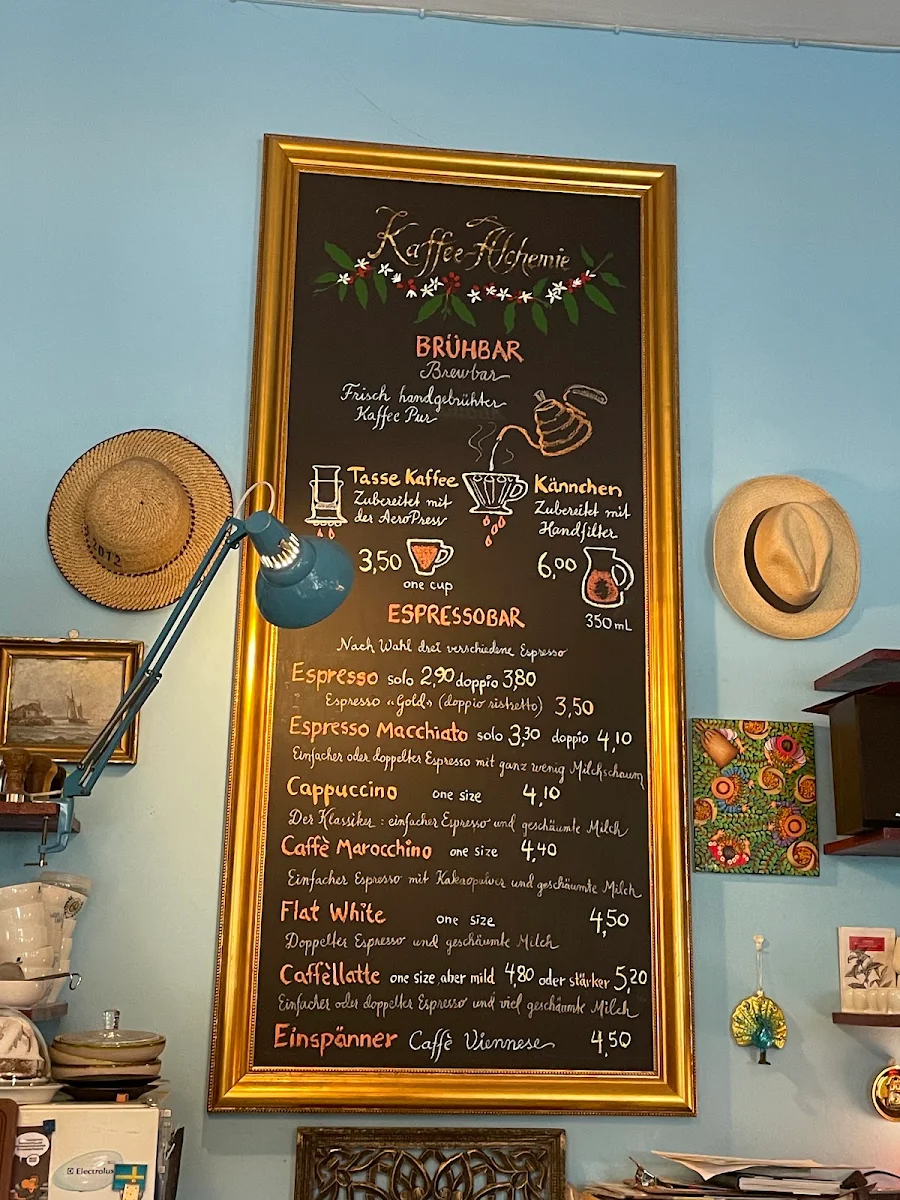 Kaffee-Alchemie
BRÜHBAR
Brewbar
Frisch handgebrühter
Kaffee Pur
Tasse Kaffee
Zubereitet mit
der AeroPress
3,50
one cup
Kännchen
Zubereitet mit
Handfilter
6,00
350 mL
ESPRESSOBAR
Nach Wahl drei verschiedene Espresso
Espresso solo 2,90 doppio 3,80
Espresso «Gold» (doppio ristretto) 3,50
Espresso Macchiato solo 3,30 doppio 4,10
Einfacher oder doppelter Espresso mit ganz wenig Milchschaum
Cappuccino one size 4,10
Der Klassiker : einfacher Espresso und geschäumte Milch
Caffè Marocchino one size 4,40
Einfacher Espresso mit Kakaopulver und geschäumte Milch
Flat White one size 4,50
Doppelter Espresso und geschäumte Milch
Caffèllatte one size aber mild 4,80 oder stärker 5,20
Einfacher oder doppelter Espresso und viel geschäumte Milch
Einspänner Caffè Viennese 4,50
2012
Electrolux